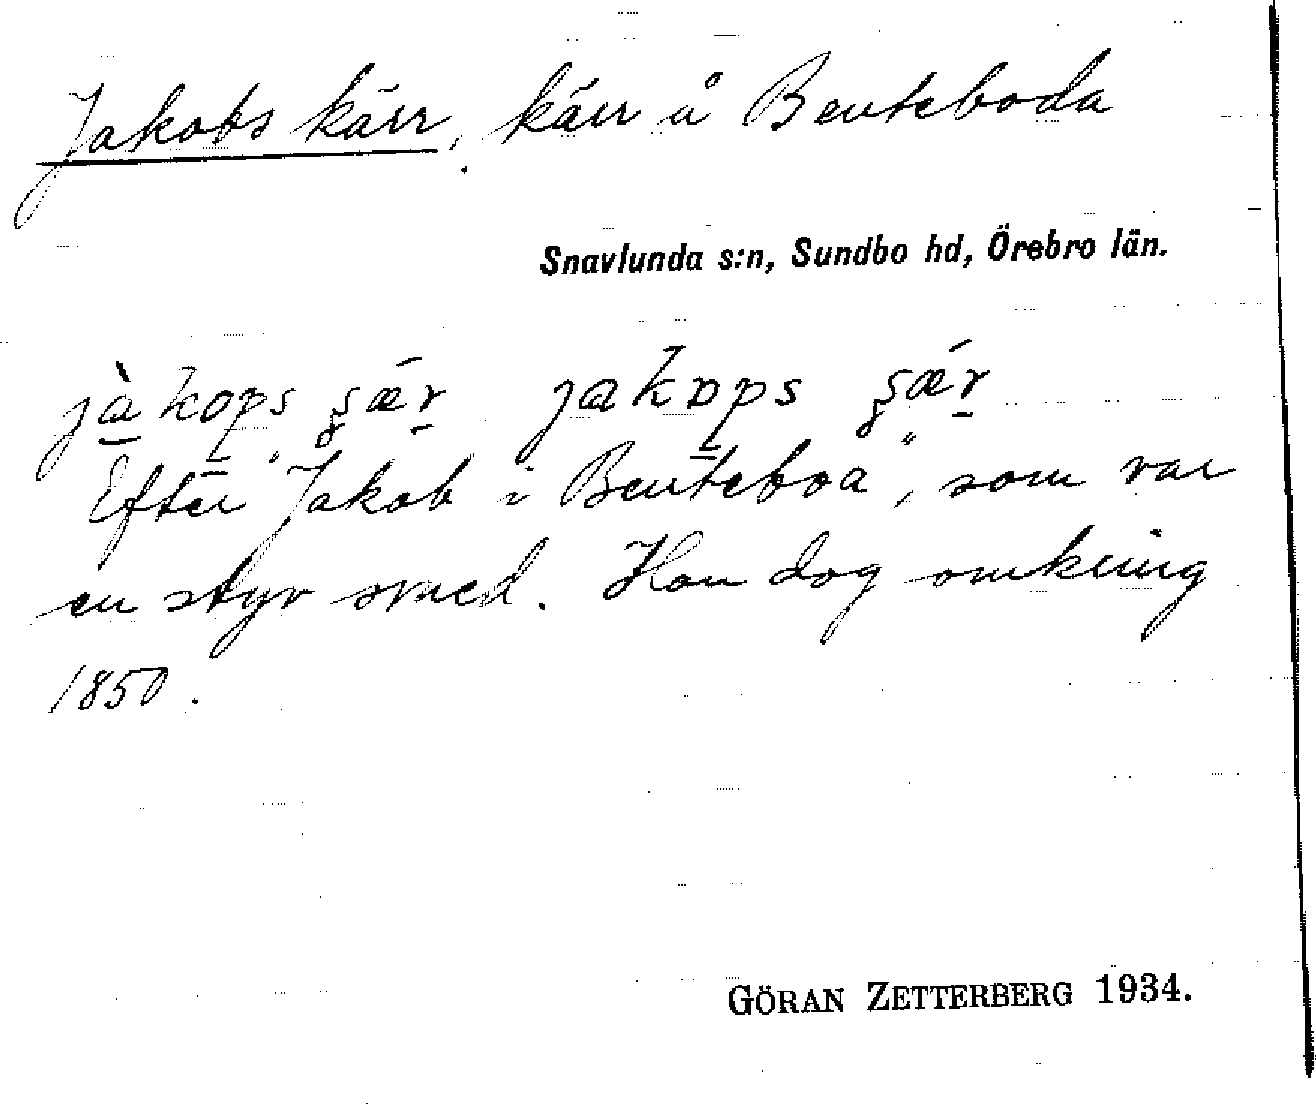 Jakobs kärr, kärr å Benteboda
Snavlunda s:n, Sundbo hd, Örebro län.
jàkops şǽr jakɒps şǽr
Efter "Jakob i Benteboa", som var
en styv smed. Han dog omkring
1850.
GÖRAN ZETTERBERG 1934.